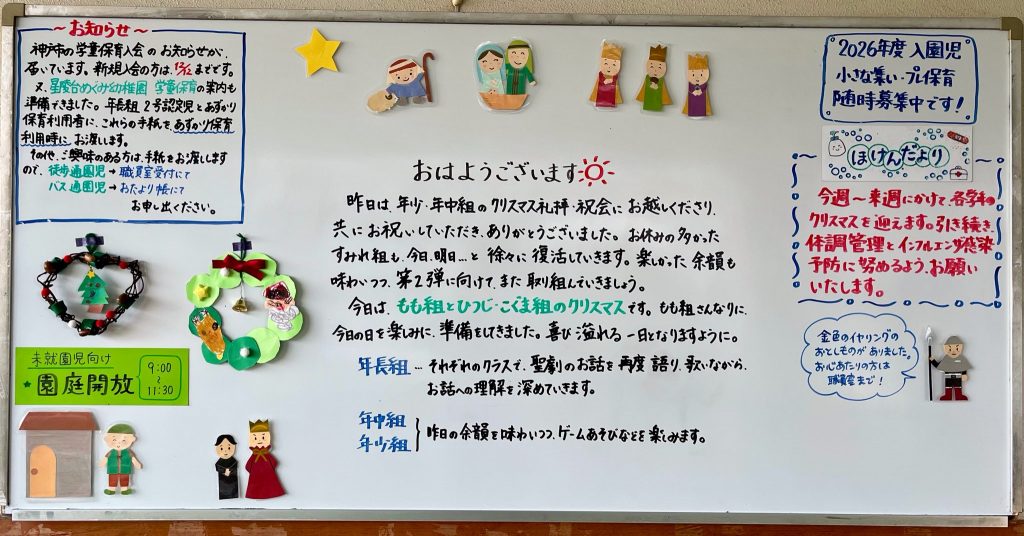 ～お知らせ～
神戸市の学童保育入会のお知らせが、
届いています。新規入会の方は、12/12までです。
又、星陵台めぐみ幼稚園 学童保育の案内も
準備できました。年長組、2号認定児とあずかり
保育利用者に、これらの手紙を、あずかり保育
利用時にお渡しします。
その他、ご興味のある方は、手紙をお渡しします
ので、徒歩通園児→職員室受付にて
バス通園児→おたより帳にて
お申し出ください。
未就園児向け
★園庭開放
9:00
～
11:30
おはようございます
昨日は、年少・年中組のクリスマス礼拝・祝会にお越しくださり、
共にお祝いしていただき、ありがとうございました。お休みの多かった
すみれ組も、今日、明日…と徐々に復活していきます。楽しかった余韻も
味わいつつ、第2弾に向けて、また取組んでいきましょう。
今日は、もも組とひつじ・こぐま組のクリスマスです。もも組さんなりに、
今日の日を楽しみに、準備をしてきました。喜び溢れる一日となりますように。
年長組…それぞれのクラスで、聖劇のお話を再度語り、歌いながら、
お話への理解を深めていきます。
年中組
年少組
昨日の余韻を味わいつつ、ゲームあそびなどを楽しみます。
2026年度 入園児
小さな集い・プレ保育
随時募集中です!
ほけんだより
今週～来週にかけて、各学年の
クリスマスを迎えます。引き続き、
体調管理とインフルエンザ感染
予防に努めるよう、お願い
いたします。
金色のイヤリングの
おとしものがありました。
お心あたりの方は
職員室まで!